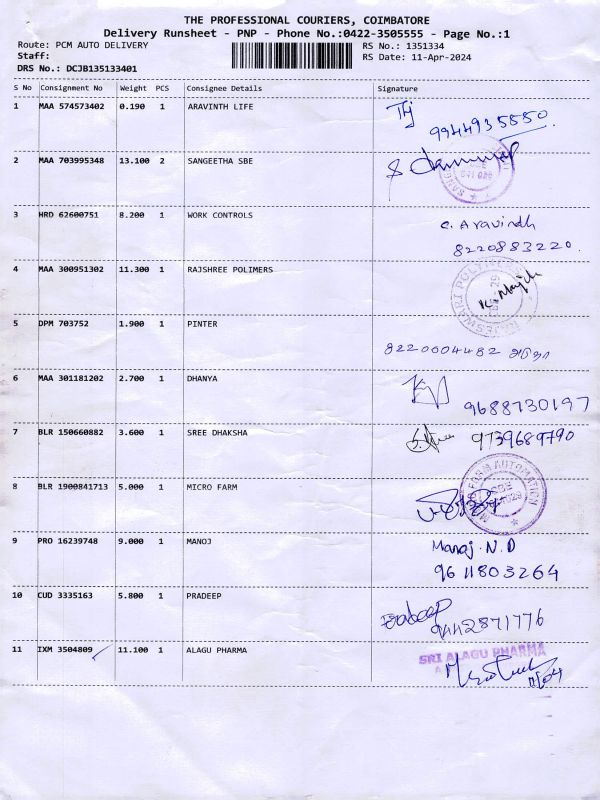 THE PROFESSIONAL COURIERS, COIMBATORE
Delivery Runsheet - PNP - Phone No.:0422-3505555 - Page No.:1
Route: PCM AUTO DELIVERY RS No.: 1351334
Staff: RS Date: 11-Apr-2024
DRS No.: DCJB135133401
S No Consignment No Weight PCS Consignee Details Signature
1 MAA 574573402 0.190 1 ARAVINTH LIFE
9944935550
2 MAA 703995348 13.100 2 SANGEETHA SBE
3 HRD 62600751 8.200 1 WORK CONTROLS C. Aravindh
8220883220.
4 MAA 300951302 11.300 1 RAJSHREE POLIMERS
5 DPM 703752 1.900 1 PINTER
8220004482
6 MAA 301181202 2.700 1 DHANYA
9688730197
7 BLR 150660882 3.600 1 SREE DHAKSHA 9739689790
8 BLR 1900841713 5.000 1 MICRO FARM
MICRO FARM AUTOMATION
9 PRO 16239748 9.000 1 MANOJ Manoj. N. D
9611803264
10 CUD 3335163 5.800 1 PRADEEP Pradeep
9442871776
11 IXM 3504809 11.100 1 ALAGU PHARMA SRI ALAGU PHARMA
11/04